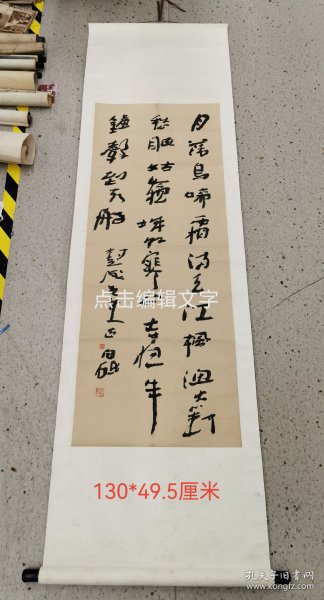 月落烏啼霜满天江楓漁火對
愁眠姑蘇城外寒山寺夜半
鐘聲到客船 先生正 白砥
点击编辑文字
130*49.5厘米
孔夫子旧书网
www.kongfz.com